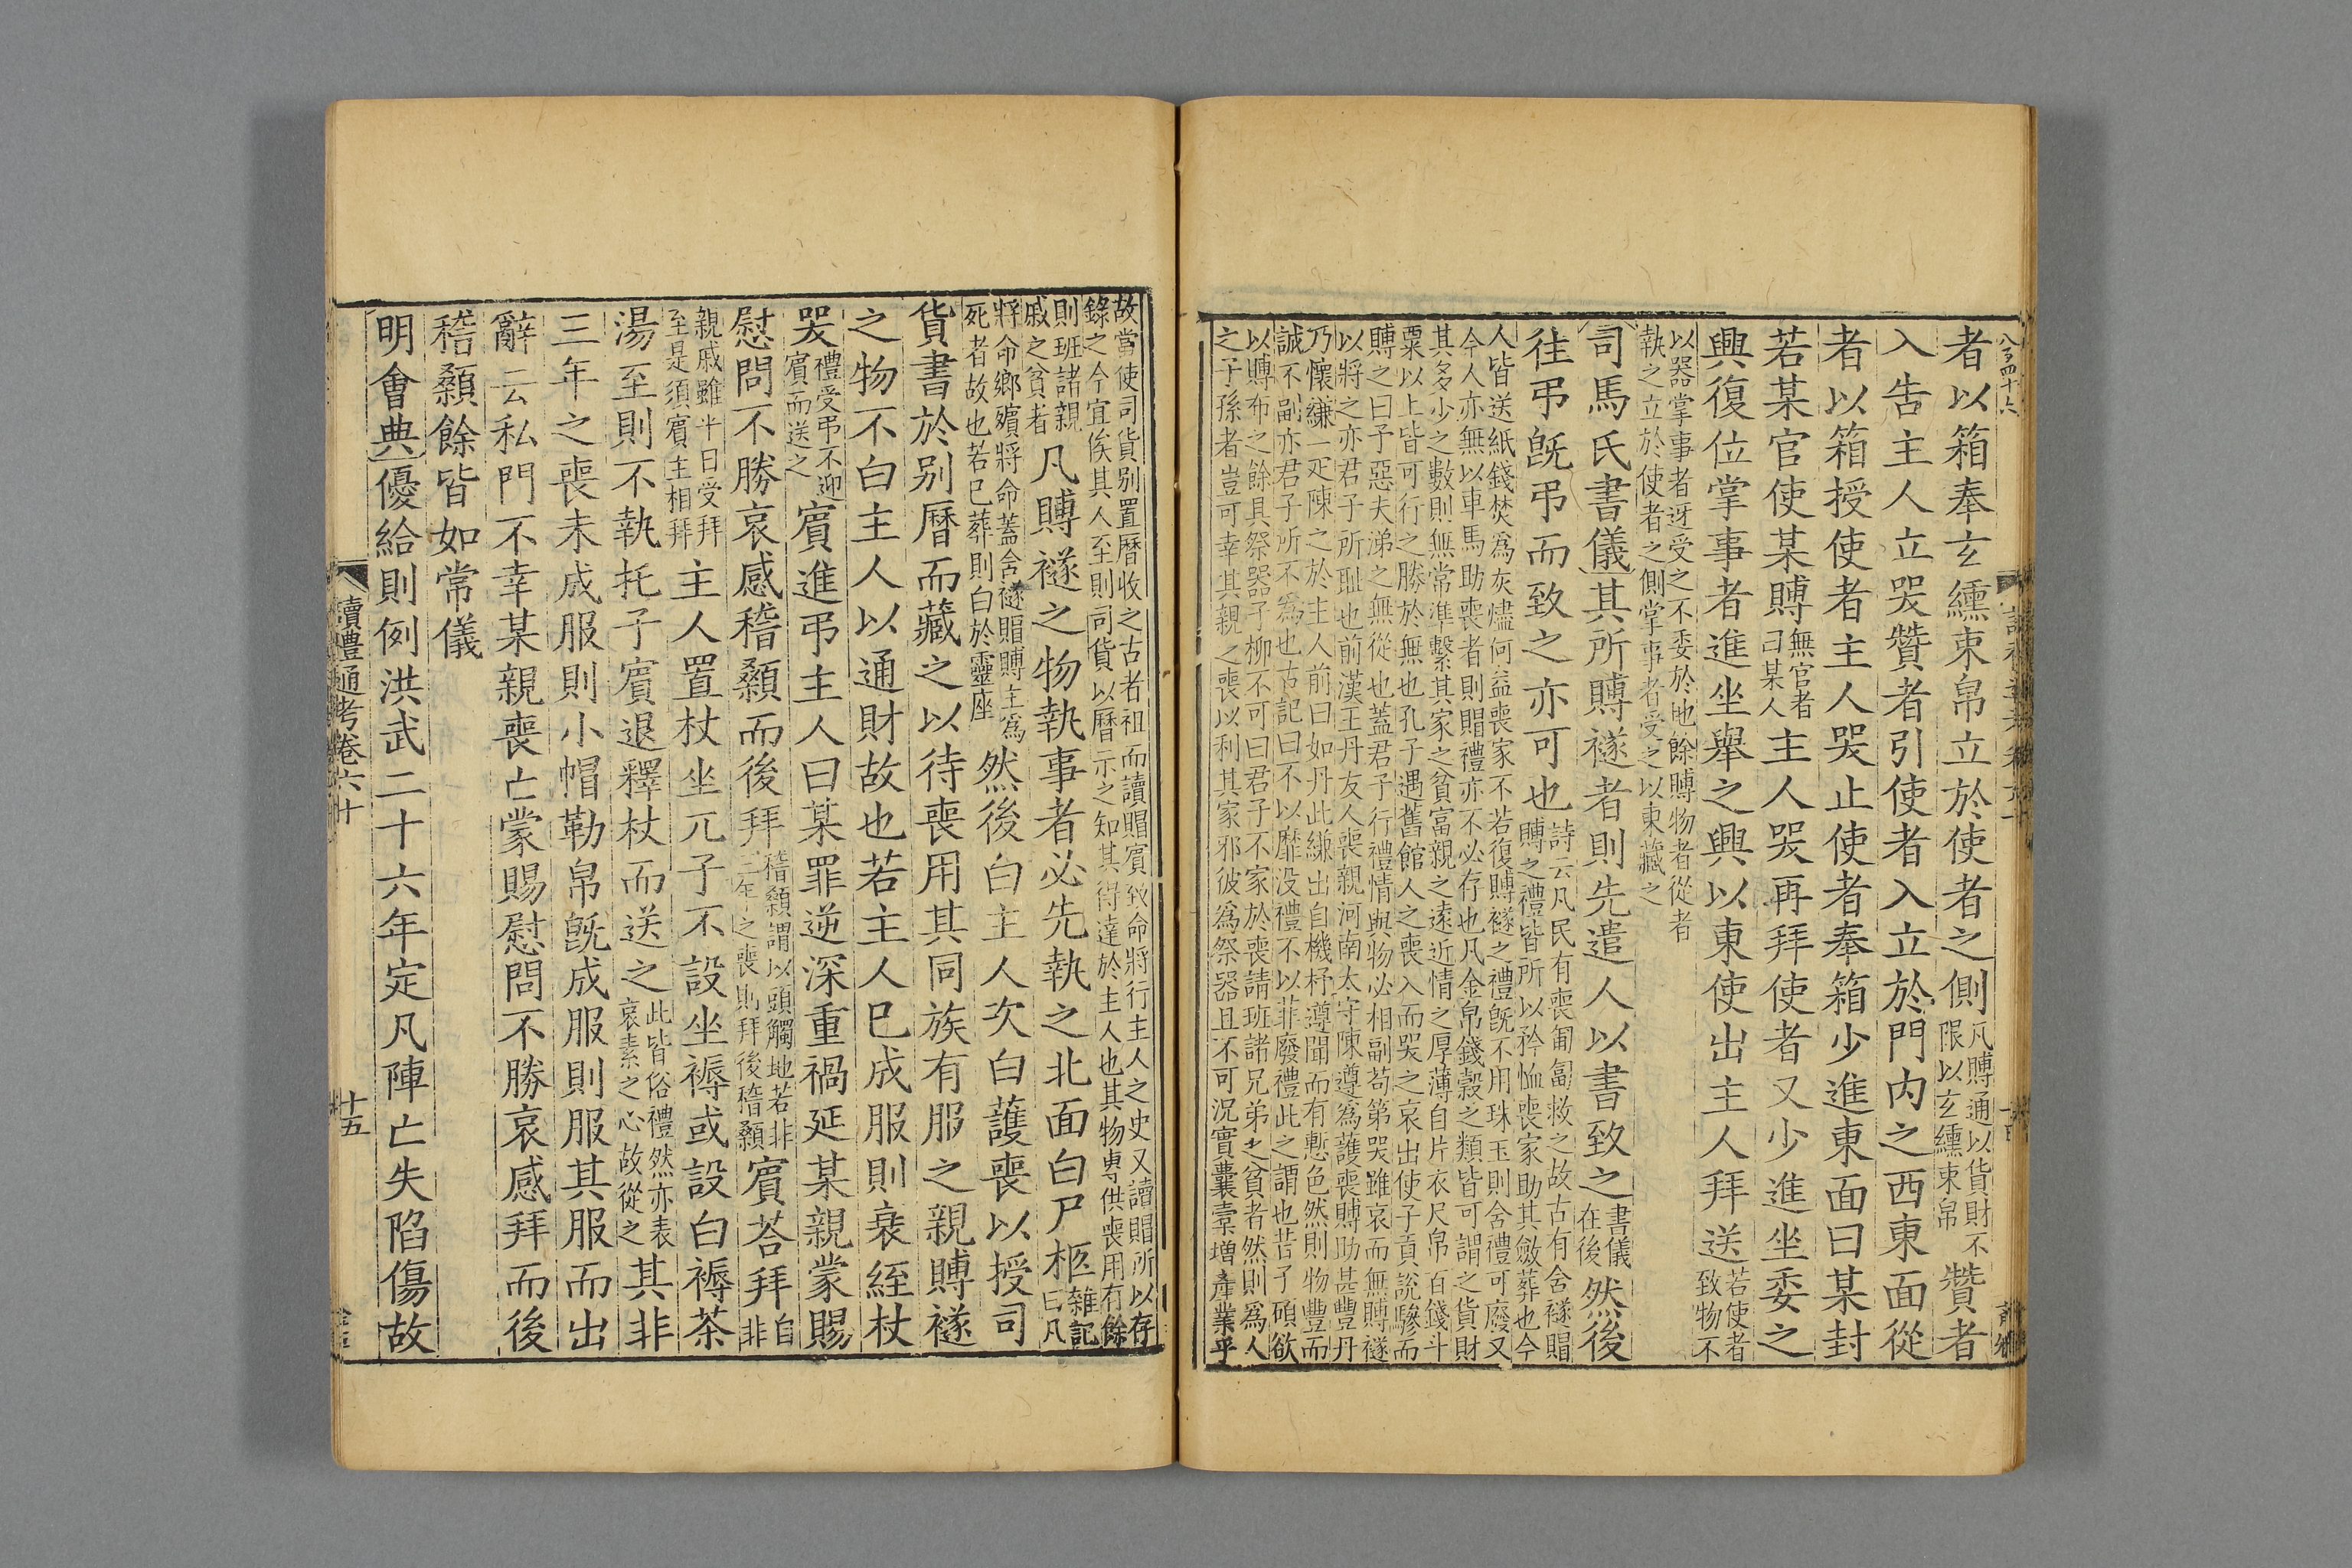 者以箱奉玄纁束帛立於使者之側凡賻通以貨財不限以玄纁束帛贊者
入告主人立哭贊者引使者入立於門内之西東面從
者以箱授使者主人哭止使者奉箱少進東面曰某封
若某官使某賻無官者曰某人主人哭再拜使者又少進坐委之
興復位掌事者進坐舉之興以東使出主人拜送若使者致物不
以器掌事者迓受之不委於地餘賻物者從者
執之立於使者之側掌事者受之以東藏之
司馬氏書儀其所賻襚者則先遣人以書致之書儀在後然後
往弔旣弔而致之亦可也詩云凡民有喪匍匐救之故古有含襚賵賻之禮皆所以矜恤喪家助其斂葬也今
人皆送紙錢焚爲灰燼何益喪家不若復賻襚之禮旣不用珠玉則含禮可廢又
今人亦無以車馬助喪者則賵禮亦不必存也凡金帛錢穀之類皆可謂之貨財
其多少之數則無常準繫其家之貧富親之遠近情之厚薄自片衣尺帛百錢斗
粟以上皆可行之勝於無也孔子遇舊館人之喪入而哭之哀出使子貢說驂而
賻之曰予惡夫涕之無從也蓋君子行禮情與物必相副苟第哭雖哀而無賻襚
以將之亦君子所耻也前漢王丹友人喪親河南太守陳遵爲護喪賻助甚豐丹
乃懷縑一疋陳之於主人前曰如丹此縑出自機杼遵聞而有慙色然則物豐而
誠不副亦君子所不爲也古記曰不以靡没禮不以菲廢禮此之謂也昔子碩欲
以賻布之餘具祭器子柳不可曰君子不家於喪請班諸兄弟之貧者然則爲人
之子孫者豈可幸其親之喪以利其家邪彼爲祭器且不可況實囊橐増產業乎
故當使司貨别置曆收之古者祖而讀賵賓致命將行主人之史又讀賵所以存
錄之今宜俟其人至則司貨以曆示之知其得達於主人也其物專供喪用有餘
則班諸親戚之貧者凡賻襚之物執事者必先執之北面白尸柩雜記曰凡
將命鄉殯將命蓋含襚賵賻主爲死者故也若已葬則白於靈座然後白主人次白護喪以授司
貨書於别曆而藏之以待喪用其同族有服之親賻襚
之物不白主人以通財故也若主人巳成服則衰絰杖
哭禮受弔不迎賓而送之賓進弔主人曰某罪逆深重禍延某親蒙賜
慰問不勝哀感稽顙而後拜稽顙謂以頭觸地若非三年之喪則拜後稽顙賓荅拜自非
親戚雖平日受拜至是須賓主相拜主人置杖坐兀子不設坐褥或設白褥茶
湯至則不執托子賓退釋杖而送之此皆俗禮然亦表哀素之心故從之其非
三年之喪未成服則小帽勒帛旣成服則服其服而出
辭云私門不幸某親喪亡蒙賜慰問不勝哀感拜而後
稽顙餘皆如常儀
明會典優給則例洪武二十六年定凡陣亡失陷傷故
讀禮通考卷六十
十五